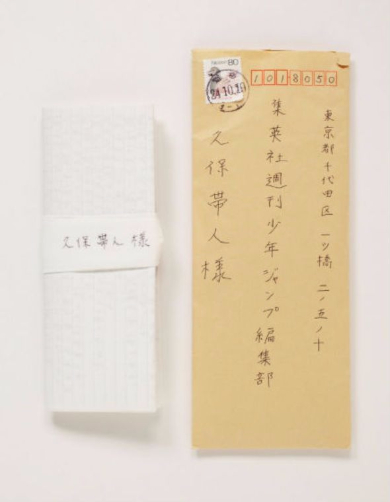 NIPPON 80
24.10.16
1018050
東京都千代田区一ツ橋二ノ五ノ十
集英社週刊少年ジャンプ編集部
久保帯人様
久保帯人様